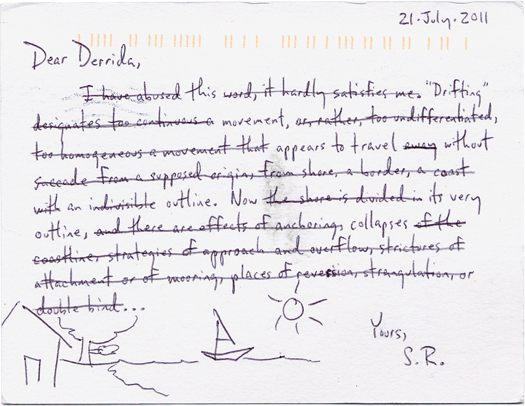 21·July·2011
Dear Derrida,
I have abused this word, it hardly satisfies me. "Drifting"
designates too continuous a movement, or, rather, too undifferentiated,
too homogeneous a movement that appears to travel away without
saccade from a supposed origin, from shore, a border, a coast
with an indivisible outline. Now the shore is divided in its very
outline, and there are effects of anchoring, collapses of the
coastline, strategies of approach and overflow, strictures of
attachment or of mooring, places of reversion, strangulation, or
double bind...
Yours,
S.R.